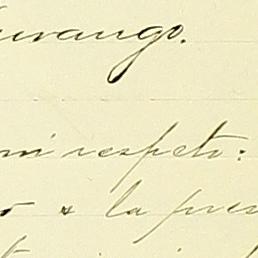 urango.
mi respeto:
o a la pres